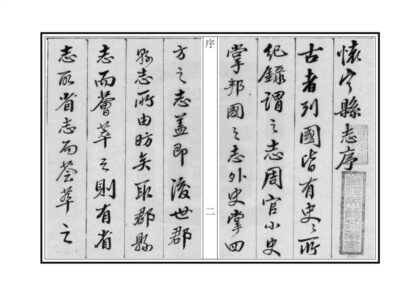 懷寧縣志序
古者列國皆有史史所
紀錄謂之志周官小史
掌邦國之志外史掌四
序
二
方之志蓋即後世郡
縣志所由昉矣取郡縣
志而薈萃之則有省
志取省志而薈萃之